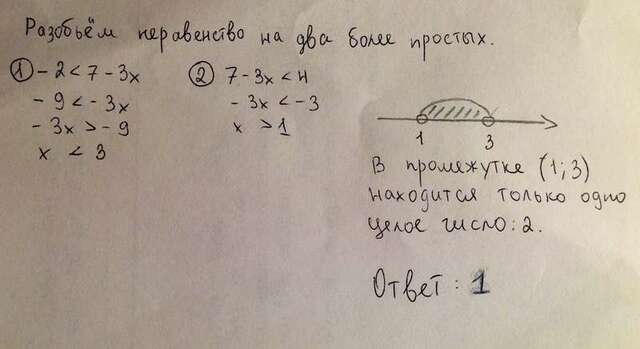 Разобьём неравенство на два более простых.
① - 2 < 7 - 3x
- 9 < - 3x
- 3x > - 9
x < 3
② 7 - 3x < 4
- 3x < - 3
x > 1
1 3
В промежутке (1; 3)
находится только одно
целое число: 2.
Ответ: 1